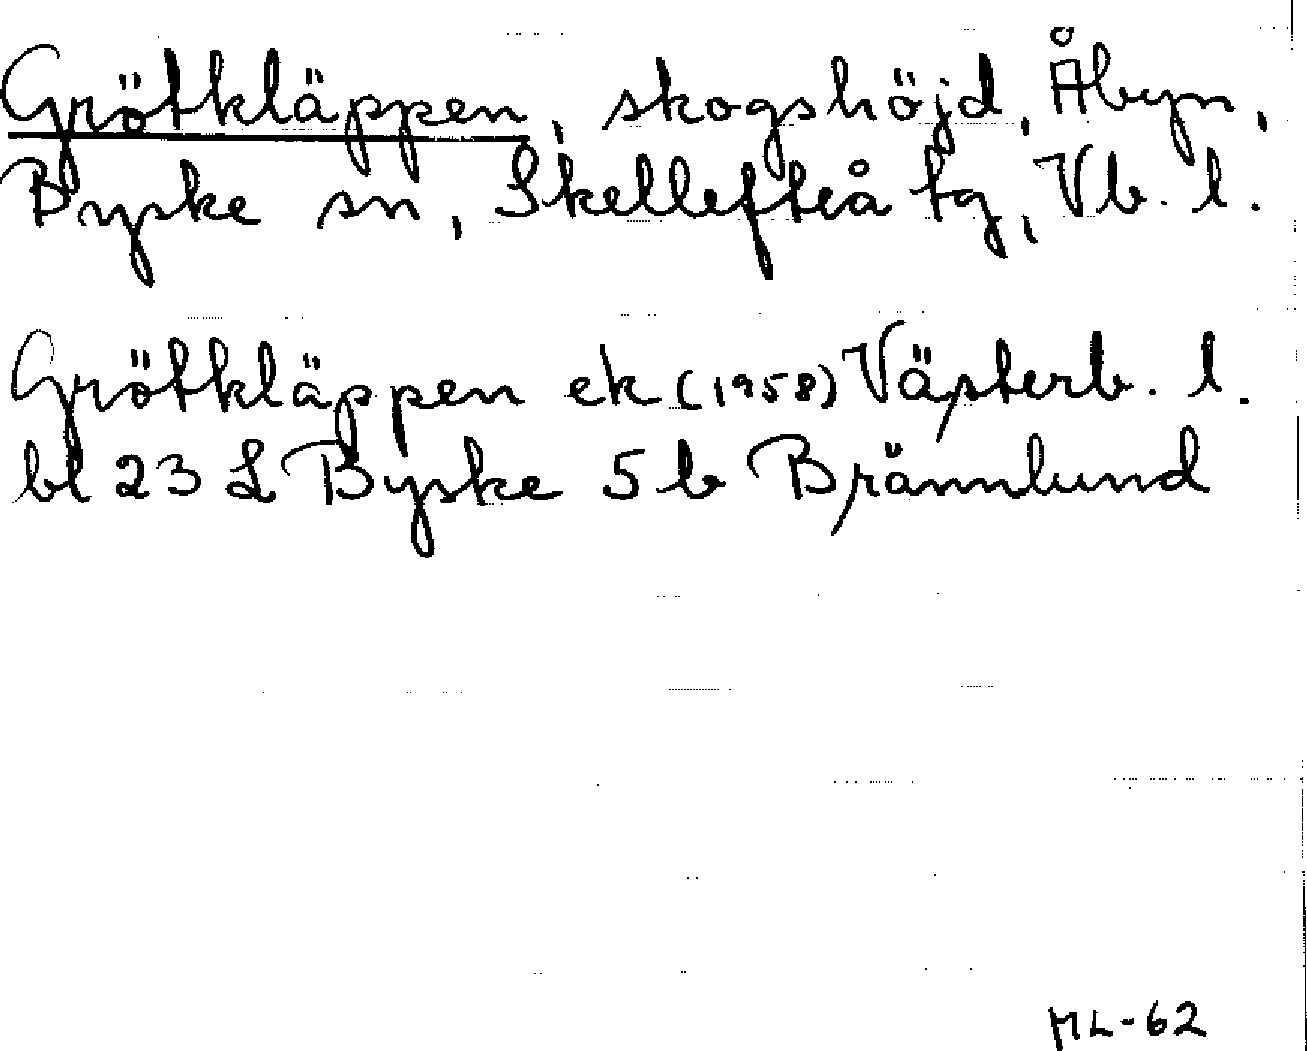 Grötkläppen, skogshöjd, Åbyn,
Byske sn, Skellefteå tg, Vb. l.
Grötkläppen ek (1958) Västerb. l.
bl 23 L Byske 5 b Brännlund
ML-62